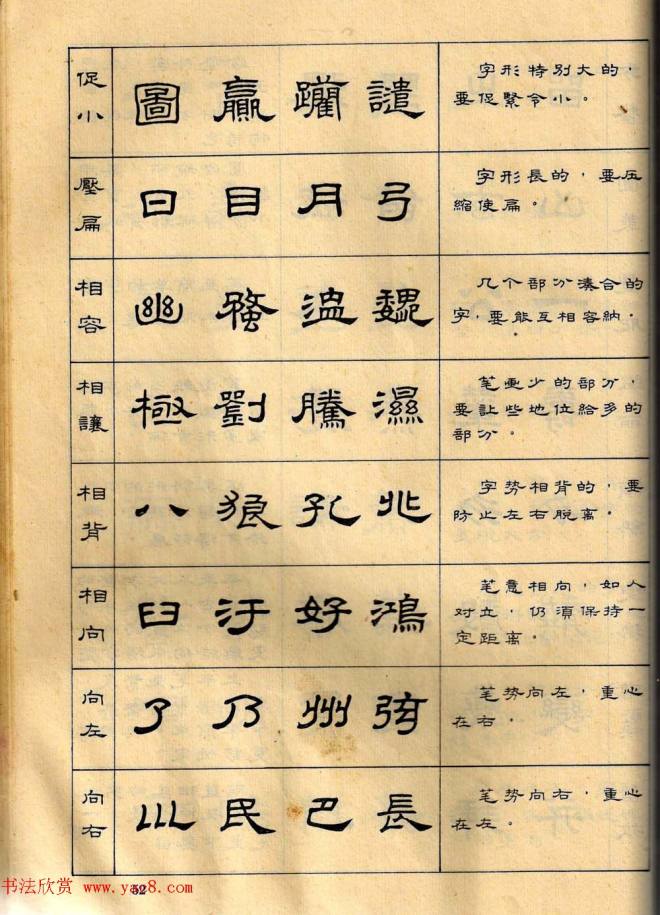 促小
圖 贏 躪 譴
字形特别大的，
要促緊令小。
壓扁
曰 目 月 弓
字形長的，要压
縮使扁。
相容
豳 飊 温 魏
几个部分凑合的
字，要能互相容納。
相讓
極 劉 騰 濕
笔画少的部分，
要让些地位給多的
部分。
相背
八 狼 孔 兆
字势相背的，要
防止左右脱离。
相向
臼 汙 好 鴻
笔意相向，如人
对立，仍須保持一
定距离。
向左
了 乃 州 弦
笔势向左，重心
在右。
向右
川 民 巴 長
笔势向右，重心
在左。
52
书法欣赏 www.yac8.com